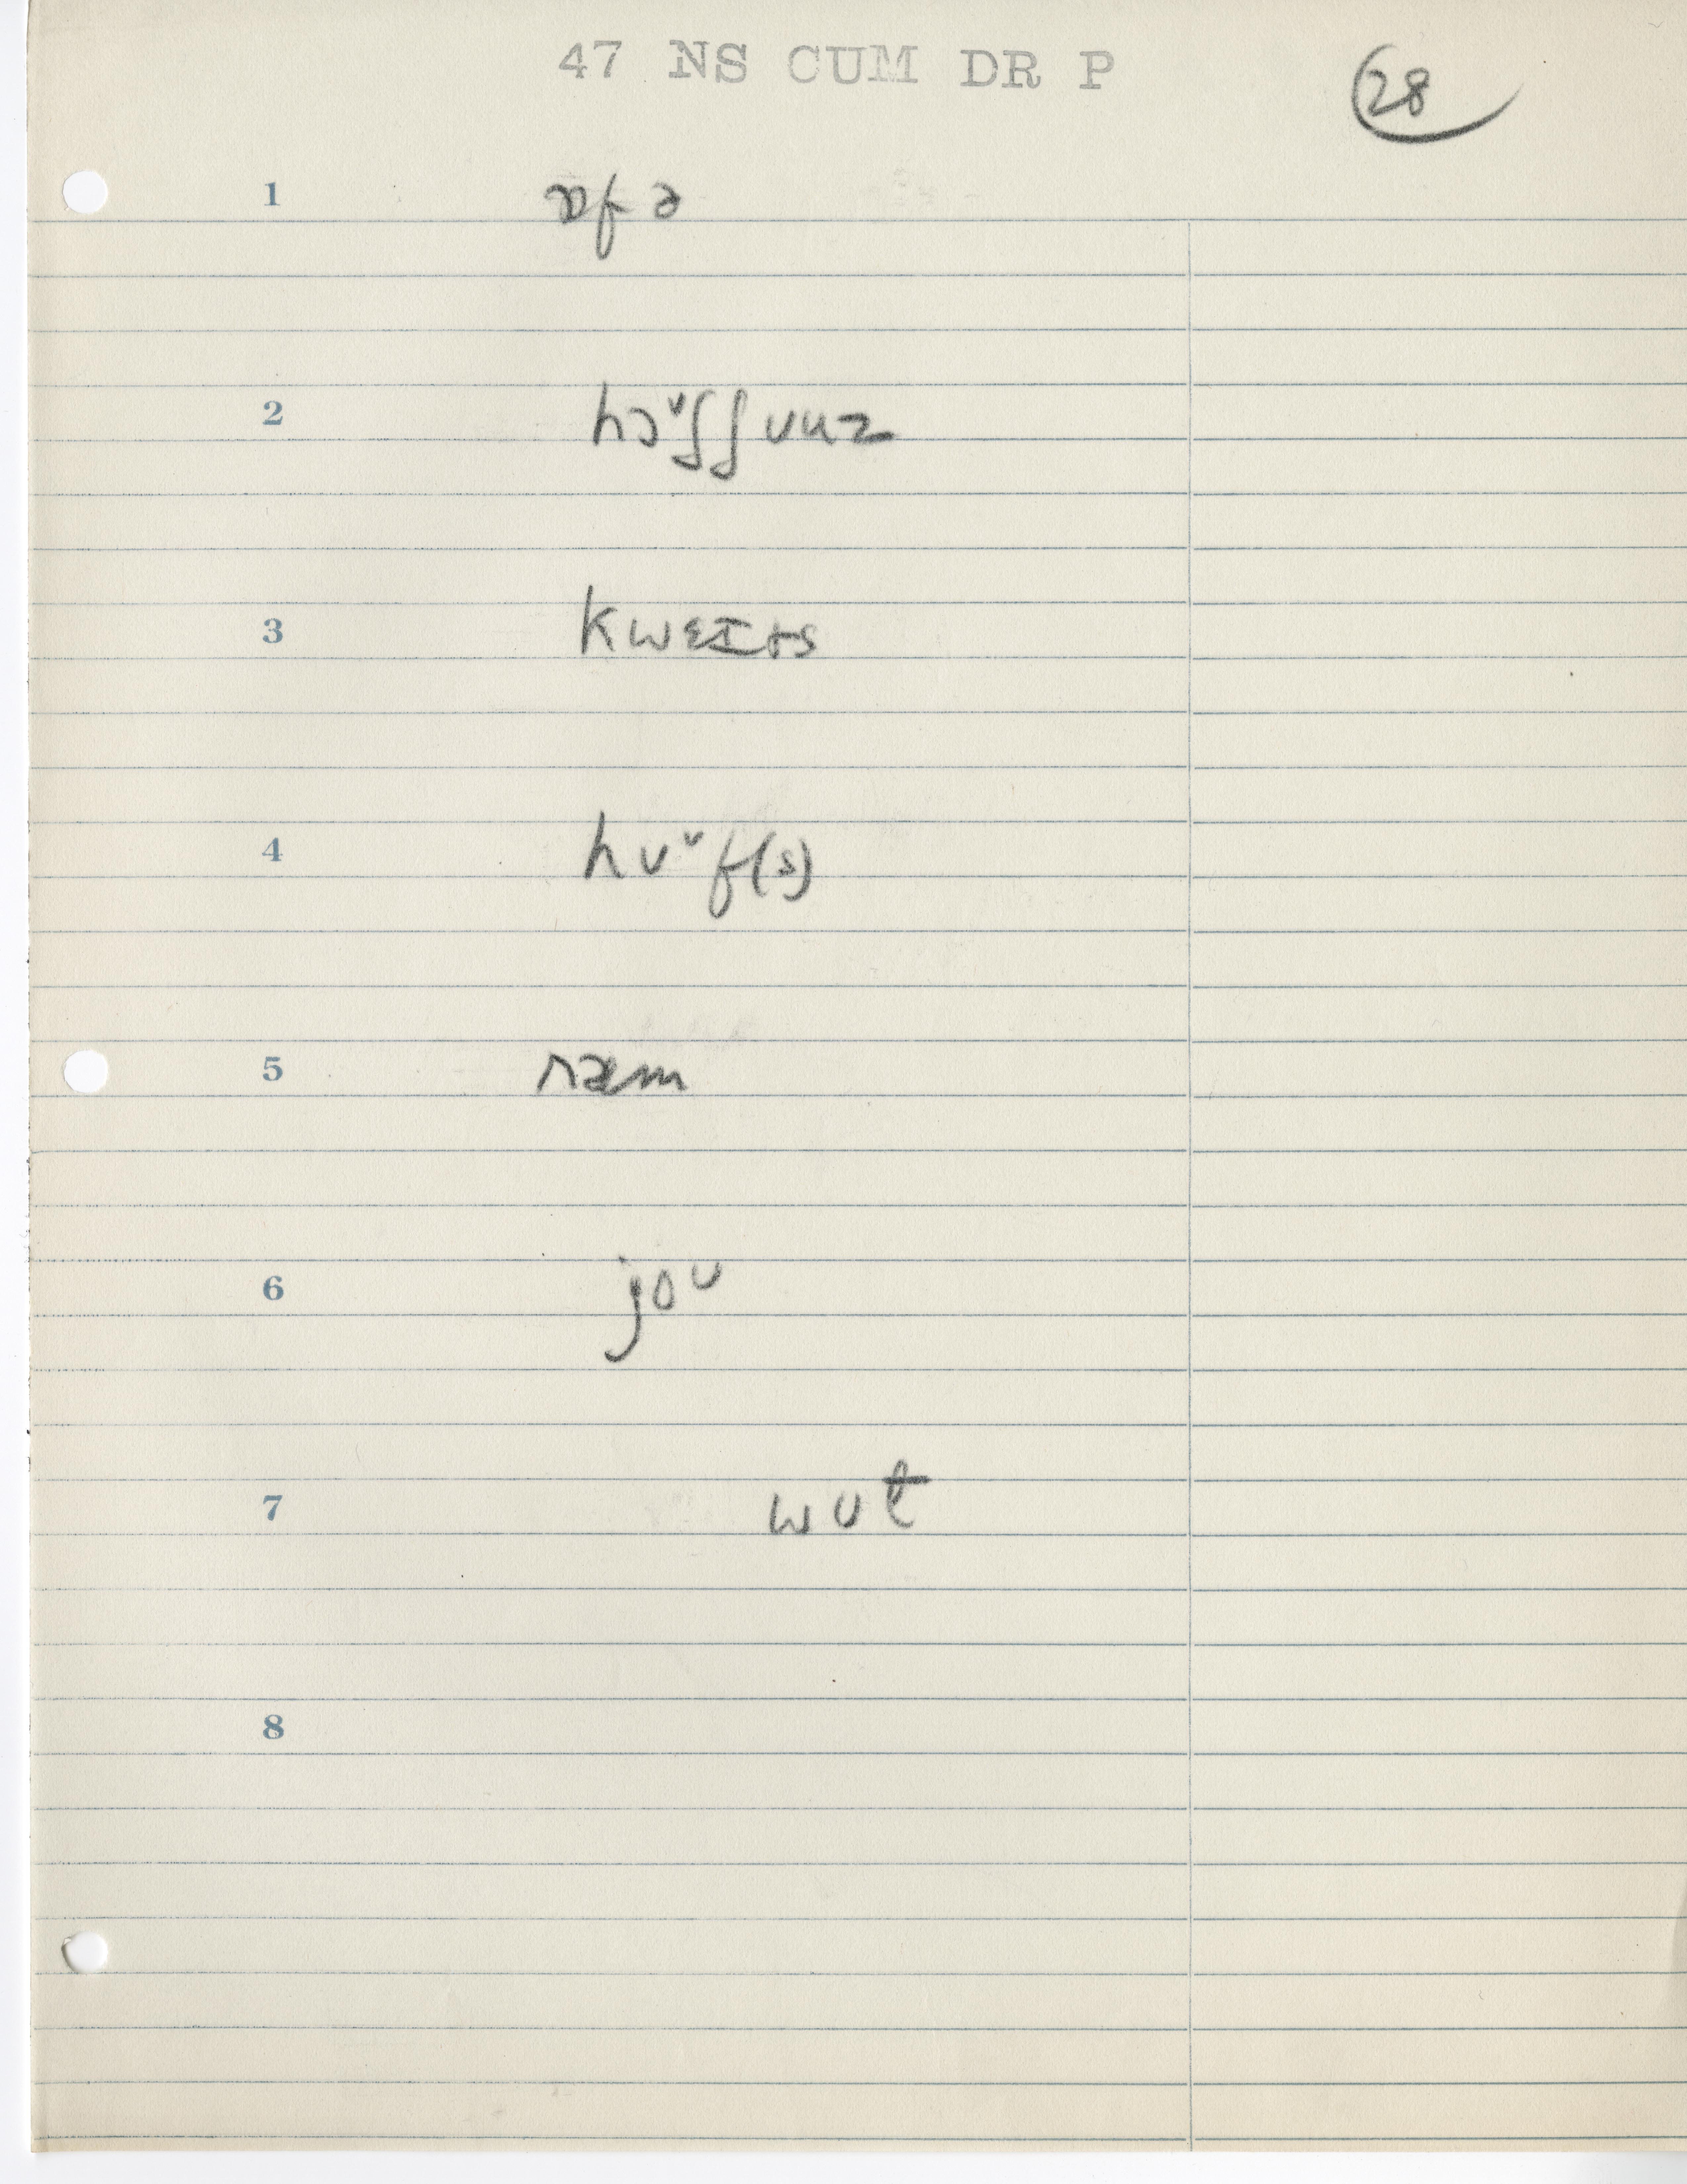 47 NS CUM DR P
28
1 ɒf ə
2 hɔᶷʃʃuuz
3 kwɛɪts
4 hʊᶷf(s)
5 ræm
6 joᶷ
7 wʊt
8